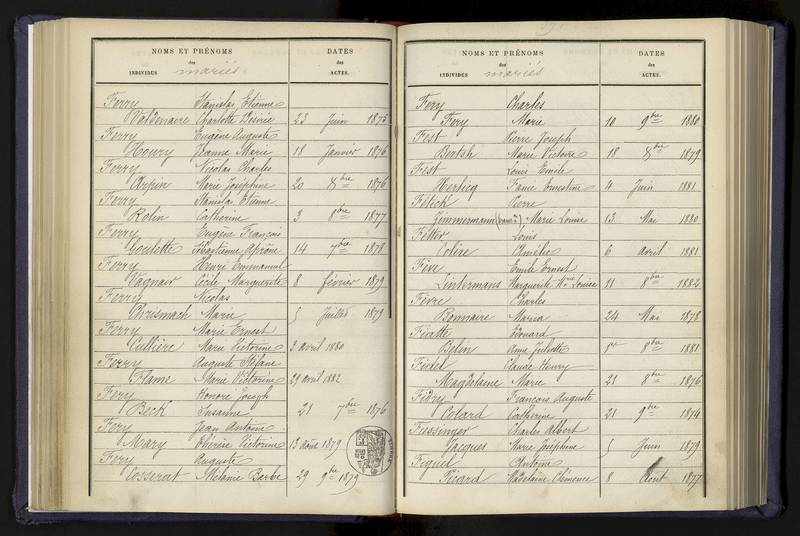 NOMS ET PRÉNOMS
des
INDIVIDUS mariés
DATES
des
ACTES.
Ferry Stanislas Etienne
Valdenaire Charlotte Désirée 23 Juin 1875
Ferry Eugène Auguste
Houry Jeanne Marie 18 Janvier 1876
Ferry Nicolas Charles
Arpin Marie Joséphine 20 Xbre 1876
Ferry Stanislas Etienne
Rolin Catherine 3 8bre 1877
Ferry Eugène François
Goulette Sébastienne 14 7bre 1878
Ferry Henri Emmanuel
Vagnair Cécile Marguerite 8 février 1879
Ferry Nicolas
Chrismach Marie 5 Juillet 1879
Ferry Marie Ernest
Cultière Marie Victorine 3 avril 1880
Ferry Auguste Stéfane
Flame Marie Victorine 29 avril 1882
Fery Honoré Joseph
Beck Susanne 21 7bre 1876
Fery Jean Antoine
Mary Thérèse Victorine 13 août 1879
Fery Auguste
Cosserat Mélanie Barbe 29 9bre 1879
NOMS ET PRÉNOMS
des
INDIVIDUS mariés
DATES
des
ACTES.
Fery Charles
Fery Marie 10 9bre 1880
Fest Pierre Joseph
Bertsh Marie Victoire 18 Xbre 1879
Fest Louis Emile
Herticq Fanie Ernestine 4 Juin 1881
Fétick Pierre
Zimmermann Marie Louise 13 Mai 1880
Fetter Louis
Colire Amélie 6 avril 1881
Fève Emile Ernest
Lintermans Marguerite Mie Louise 11 8bre 1882
Fèvre Charles
Bonnaire Maria 24 Mai 1878
Fiatte Edouard
Belin Anne Juliette 8bre 1881
Fidel Claude Henry
Magdelaine Marie 21 8bre 1876
Fidry François Auguste
Colard Catherine 21 9bre 1874
Fiessinger Charles Albert
Jacques Marie Joséphine 5 Juin 1879
Figuel Antoine
Picard Madelaine Clémence 8 Août 1877